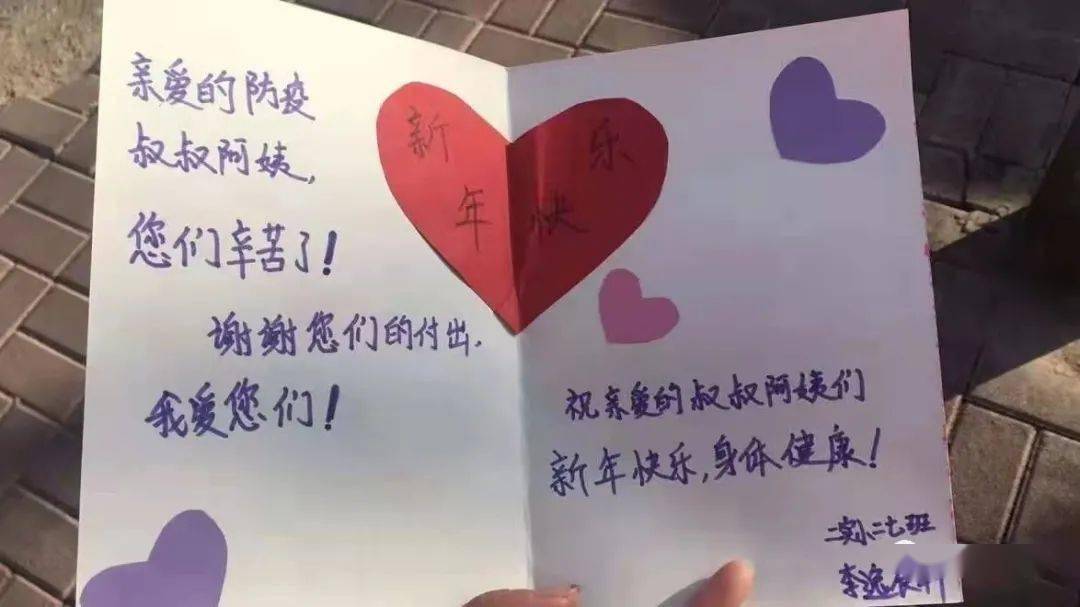 亲爱的防疫
叔叔阿姨,
您们辛苦了!
谢谢您们的付出.
我爱您们!
新年快乐
祝亲爱的叔叔阿姨们
新年快乐,身体健康!
二实小二七班
李逸